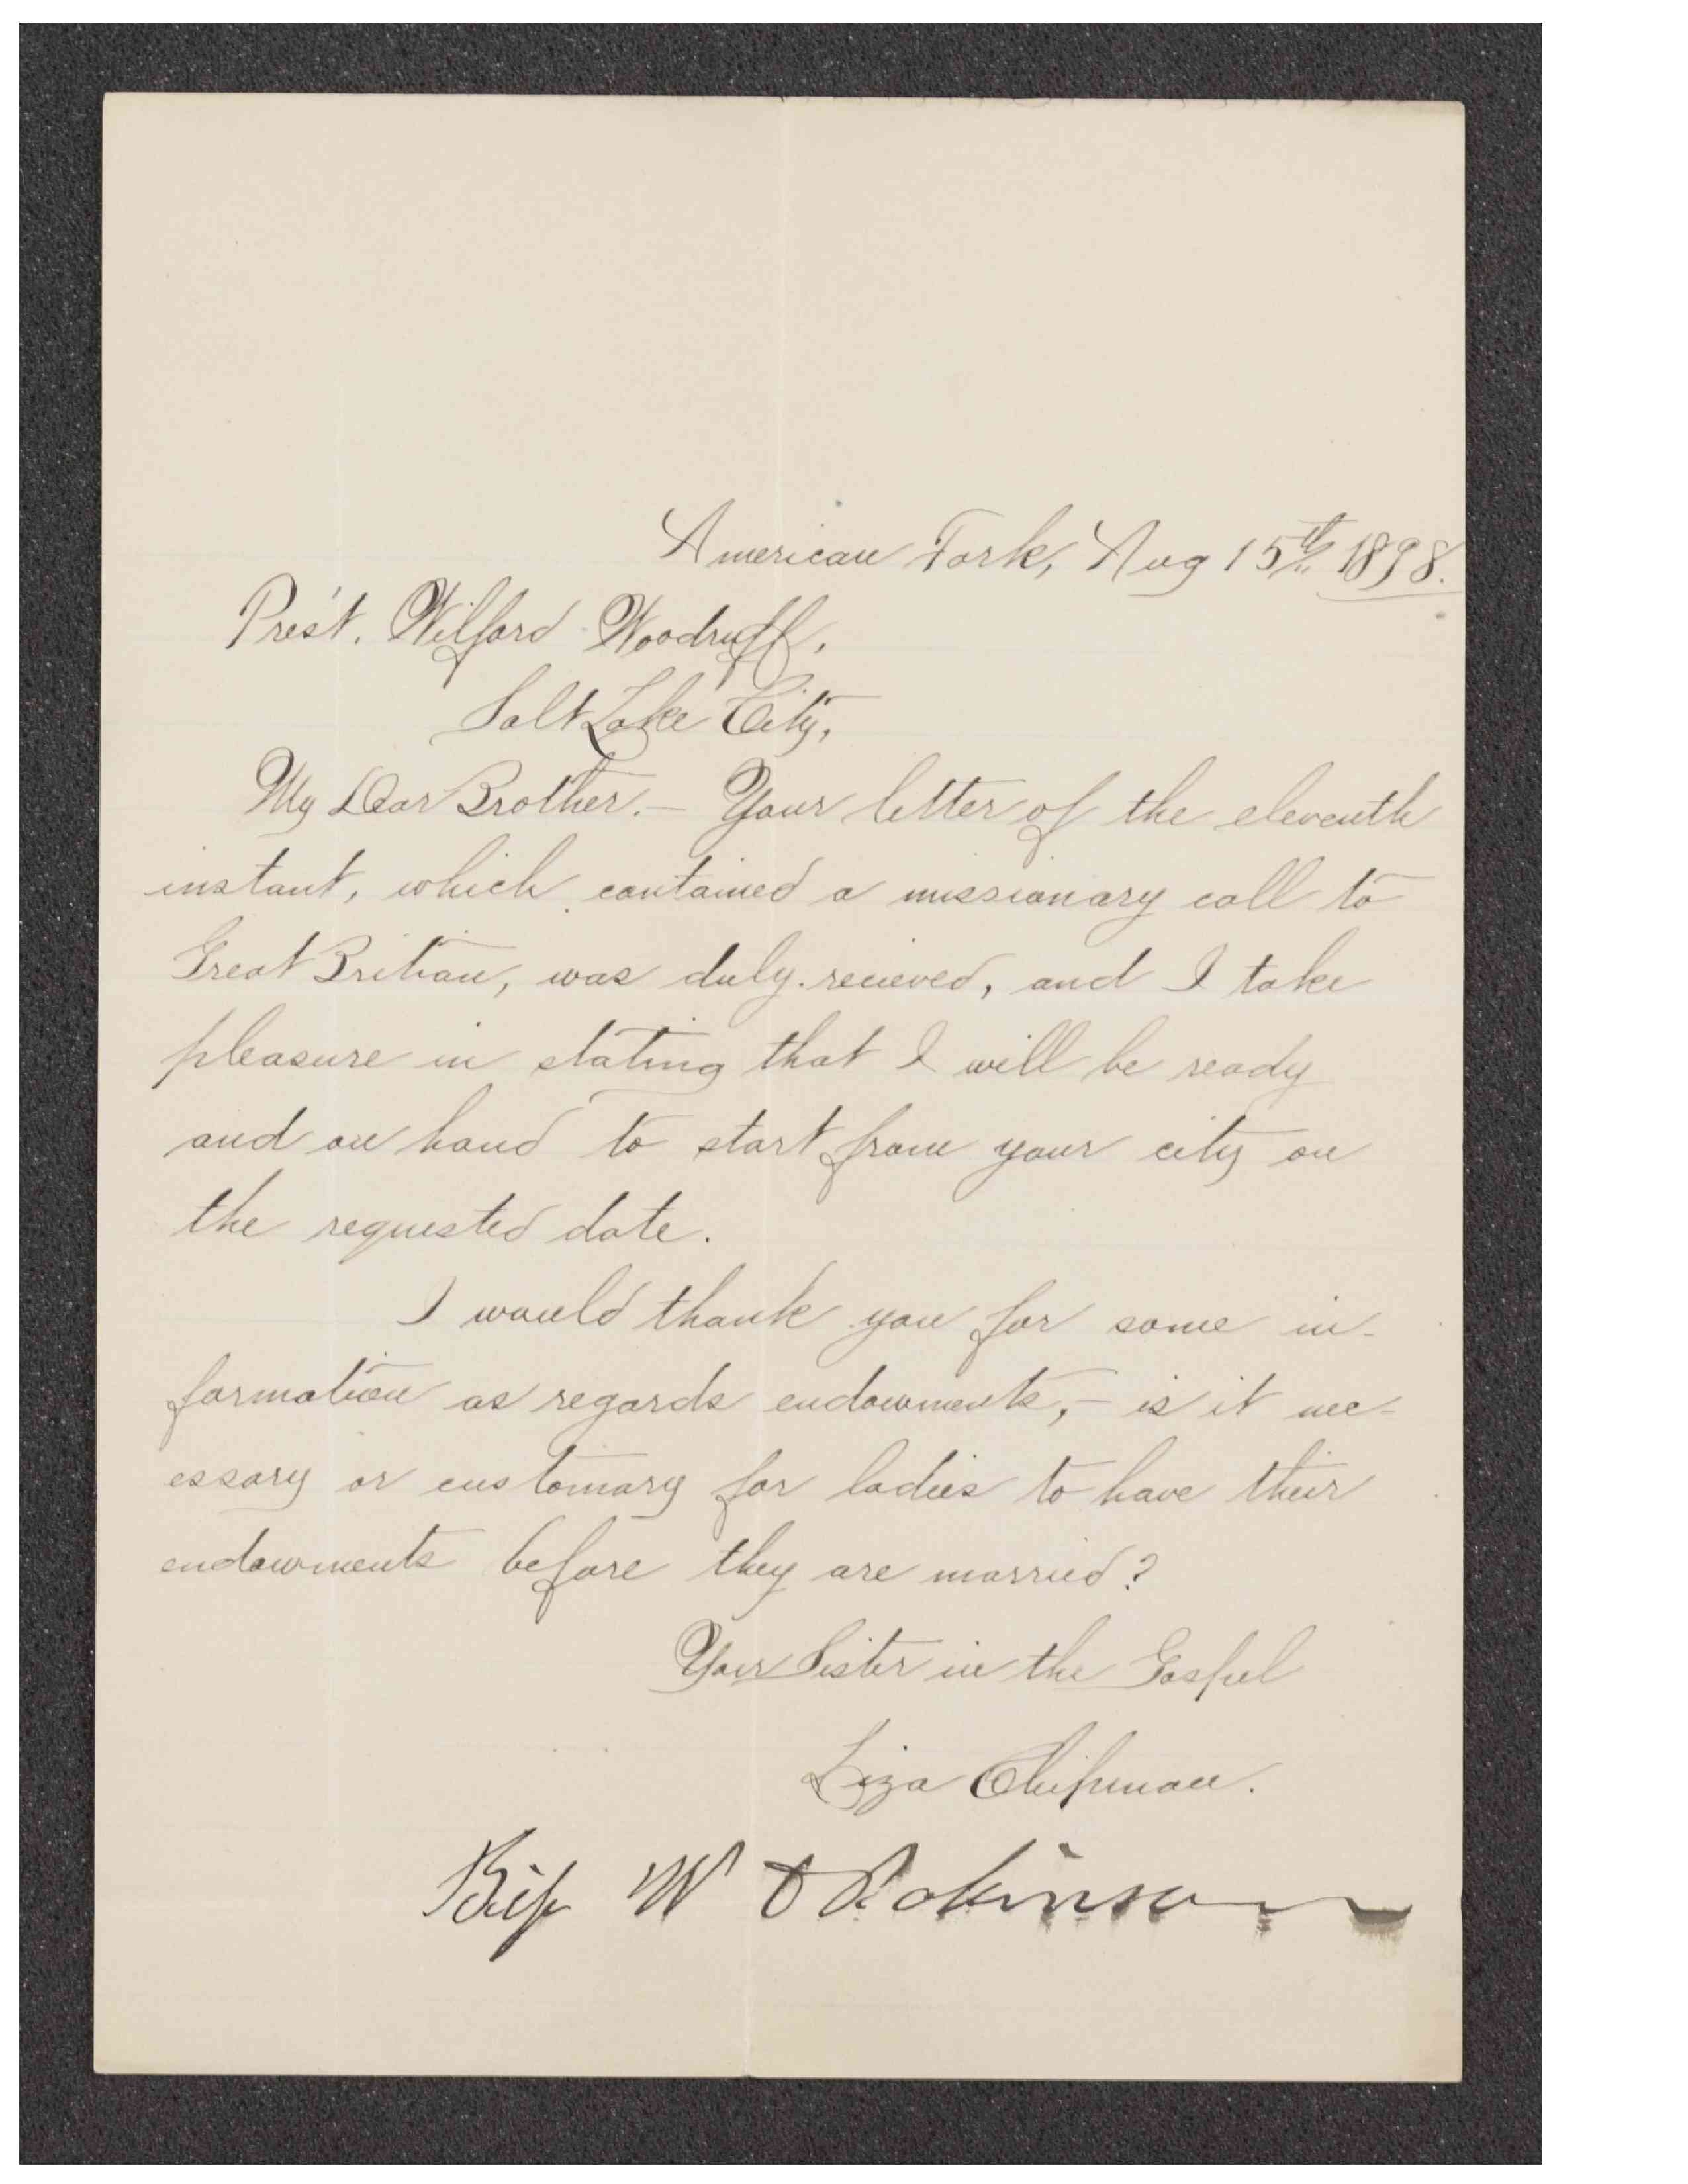 American Fork, Aug 15th 1898.
Pres't. Wilford Woodruff,
Salt Lake City,
My Dear Brother.— Your letter of the eleventh
instant, which contained a missionary call to
Great Britian, was duly recieved, and I take
pleasure in stating that I will be ready
and on hand to start from your city on
the requested date.
I would thank you for some in-
formation as regards endowments,— is it nec-
essary or customary for ladies to have their
endowments before they are married?
Your Sister in the Gospel
Liza Chipman.
Bip W D Robinson